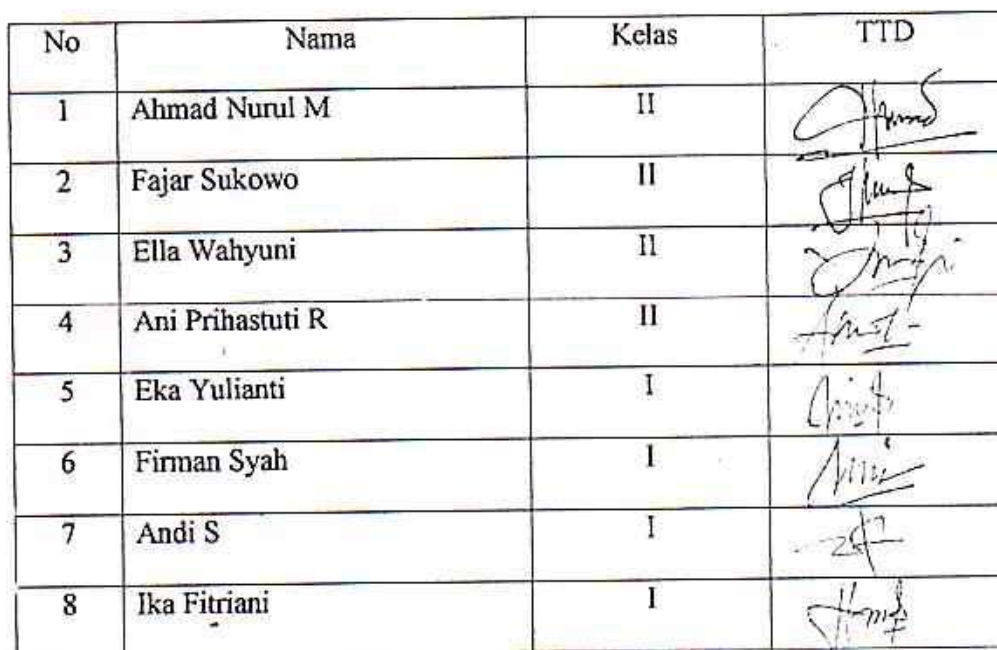 No Nama Kelas TTD
1 Ahmad Nurul M II
2 Fajar Sukowo II
3 Ella Wahyuni II
4 Ani Prihastuti R II
5 Eka Yulianti I
6 Firman Syah I
7 Andi S I
8 Ika Fitriani I